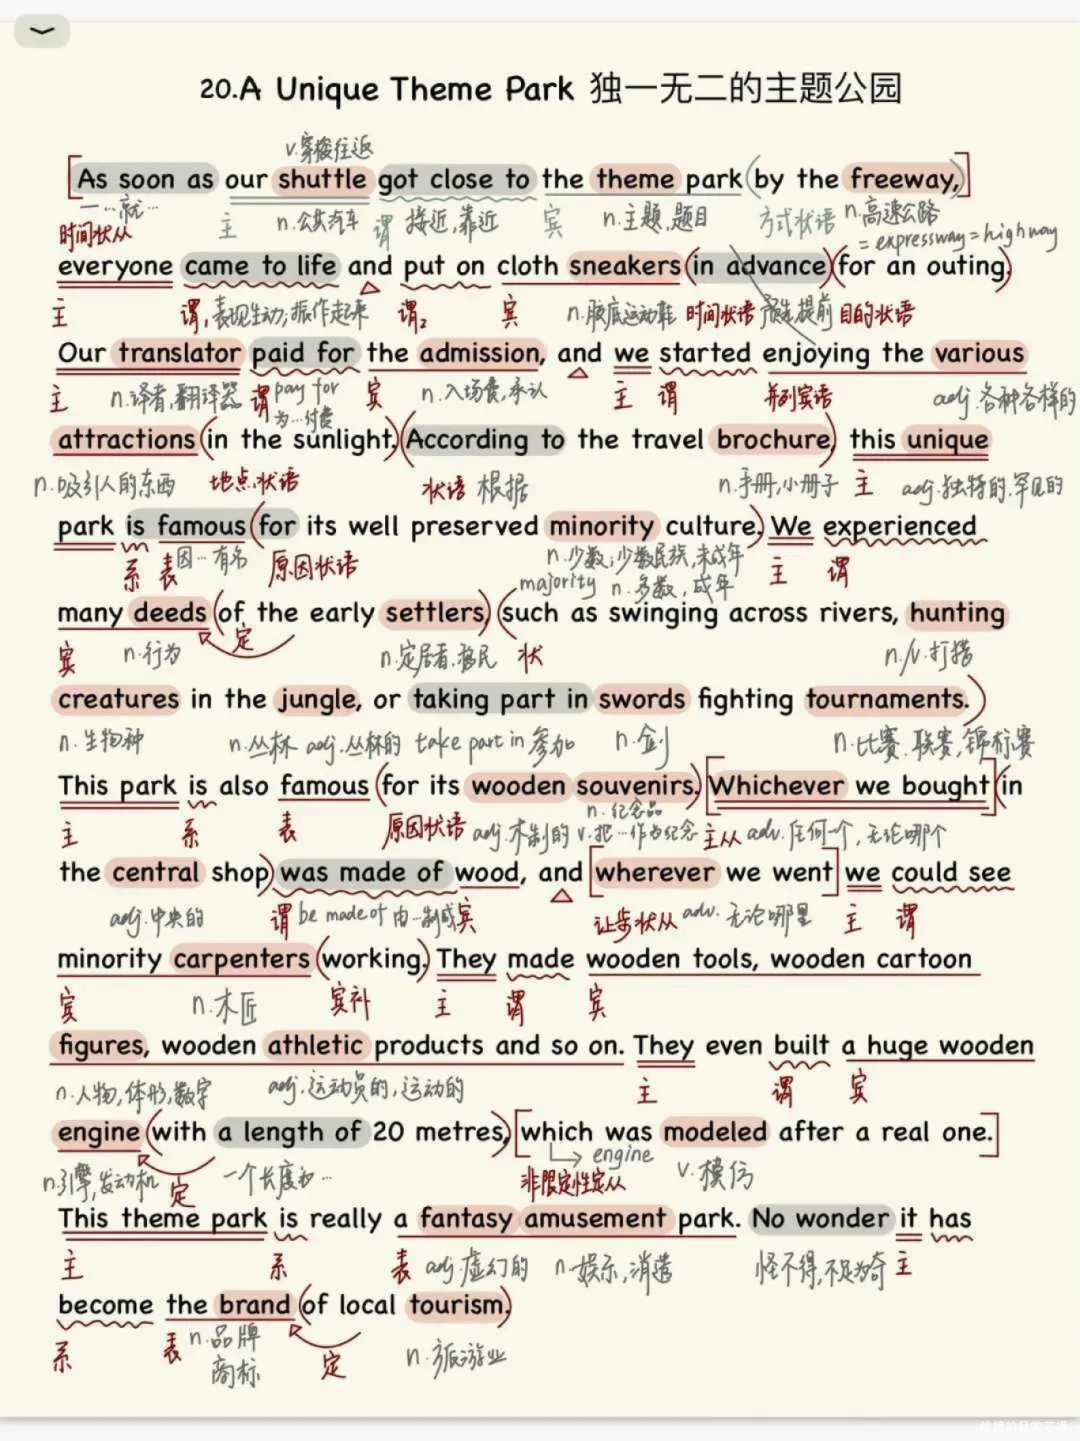 20.A Unique Theme Park 独一无二的主题公园
v.穿梭往返
As soon as our shuttle got close to the theme park (by the freeway,)]
一…就… 主 n.公共汽车 谓 接近,靠近 宾 n.主题,题目 方式状语 n.高速公路
时间状从 = expressway = highway
everyone came to life and put on cloth sneakers (in advance)(for an outing)
主 谓1 表现生动;振作起来 谓2 宾 n.胶底运动鞋 时间状语 预先,提前 目的状语
Our translator paid for the admission, and we started enjoying the various
主 n.译者,翻译器 谓 pay for 宾 n.入场费,承认 主 谓 并列宾语 adj.各种各样的
为…付费
attractions (in the sunlight.)(According to the travel brochure,) this unique
n.吸引人的东西 地点状语 状语 根据 n.手册,小册子 主 adj.独特的.罕见的
park is famous (for its well preserved minority culture.) We experienced
系 表 因…有名 原因状语 n.少数;少数民族,未成年 主 谓
majority n.多数,成年
many deeds (of the early settlers,) (such as swinging across rivers, hunting
宾 n.行为 定 n.定居者,移民 状 n./v.打猎
creatures in the jungle, or taking part in swords fighting tournaments.)
n.生物种 n.丛林 adj.丛林的 take part in 参加 n.剑 n.比赛.联赛,锦标赛
This park is also famous (for its wooden souvenirs.) [Whichever we bought](in
n.纪念品
主 系 表 原因状语 adj.木制的 v.把…作为纪念 主从 adv.任何一个,无论哪个
the central shop) was made of wood, and [wherever we went] we could see
adj.中央的 谓 be made of 由…制成 宾 让步状从 adv.无论哪里 主 谓
minority carpenters (working.) They made wooden tools, wooden cartoon
宾 n.木匠 宾补 主 谓 宾
figures, wooden athletic products and so on. They even built a huge wooden
n.人物,体形,数字 adj.运动员的,运动的 主 谓 宾
engine (with a length of 20 metres,) [which was modeled after a real one.]
engine
n.引擎,发动机 定 一个长度为… 非限定性定从 v.模仿
This theme park is really a fantasy amusement park. No wonder it has
主 系 表 adj.虚幻的 n.娱乐,消遣 怪不得,不足为奇 主
become the brand (of local tourism.)
系 表 n.品牌 定 n.旅游业
商标